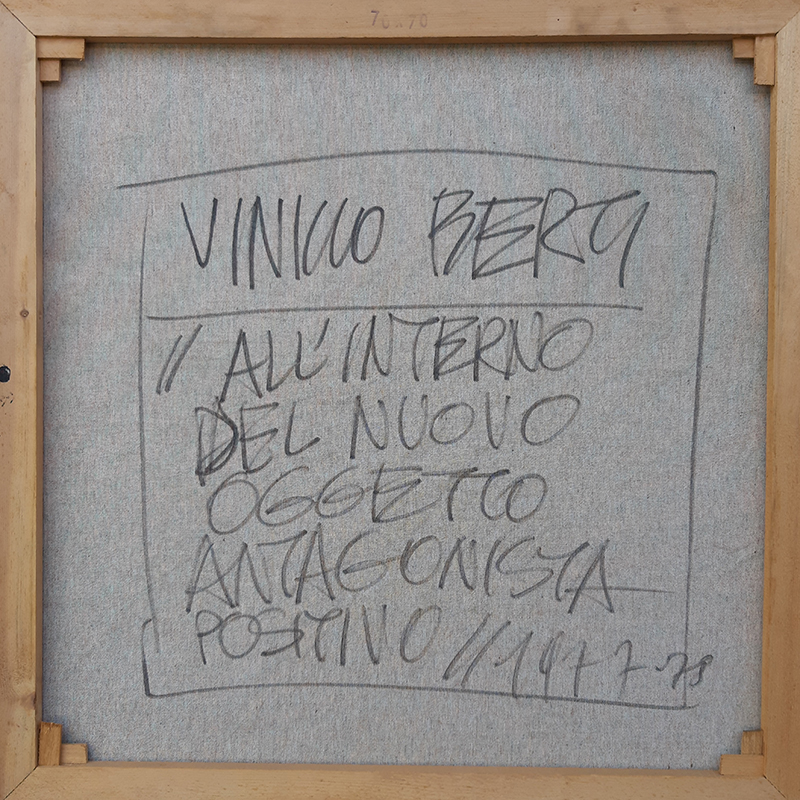 70 x 70
VINICIO BERTI
// ALL'INTERNO
DEL NUOVO
OGGETTO
ANTAGONISTA
POSITIVO // 1977-78